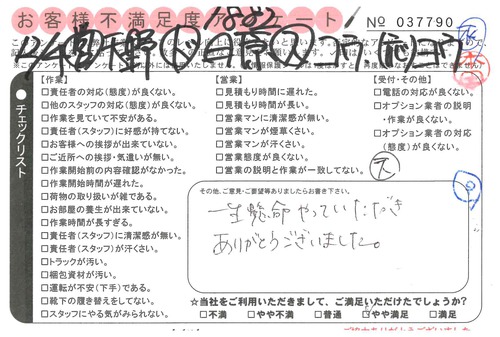 お客様不満足度アンケート
№ 037790
チェックリスト
【作業】
□責任者の対応(態度)が良くない。
□他のスタッフの対応(態度)が良くない。
□作業を見ていて不安がある。
□責任者(スタッフ)に好感が持てない。
□お客様への挨拶が出来ていない。
□ご近所への挨拶・気遣いが無い。
□作業開始前の内容確認がなかった。
□作業開始時間が遅れた。
□荷物の取り扱いが雑である。
□お部屋の養生が出来ていない。
□作業時間が長すぎる。
□責任者(スタッフ)に清潔感が無い。
□責任者(スタッフ)が汗くさい。
□トラックが汚い。
□梱包資材が汚い。
□運転が不安(下手)である。
□靴下の履き替えをしてない。
□スタッフにやる気がみられない。
【営業】
□見積もり時間に遅れた。
□見積もり時間が長い。
□営業マンに清潔感が無い。
□営業マンが煙草くさい。
□営業マンが汗くさい。
□営業態度が良くない。
□営業の説明と作業が一致してない。
【受付・その他】
□電話の対応が良くない。
□オプション業者の説明
・作業が良くない。
□オプション業者の対応
(態度)が良くない。
その他、ご意見・ご要望等ありましたらお書き下さい。
一生懸命やっていただき
ありがとうございました。
☆当社をご利用いただきまして、ご満足いただけたでしょうか?
□不満 □やや不満 □普通 □やや満足 □満足